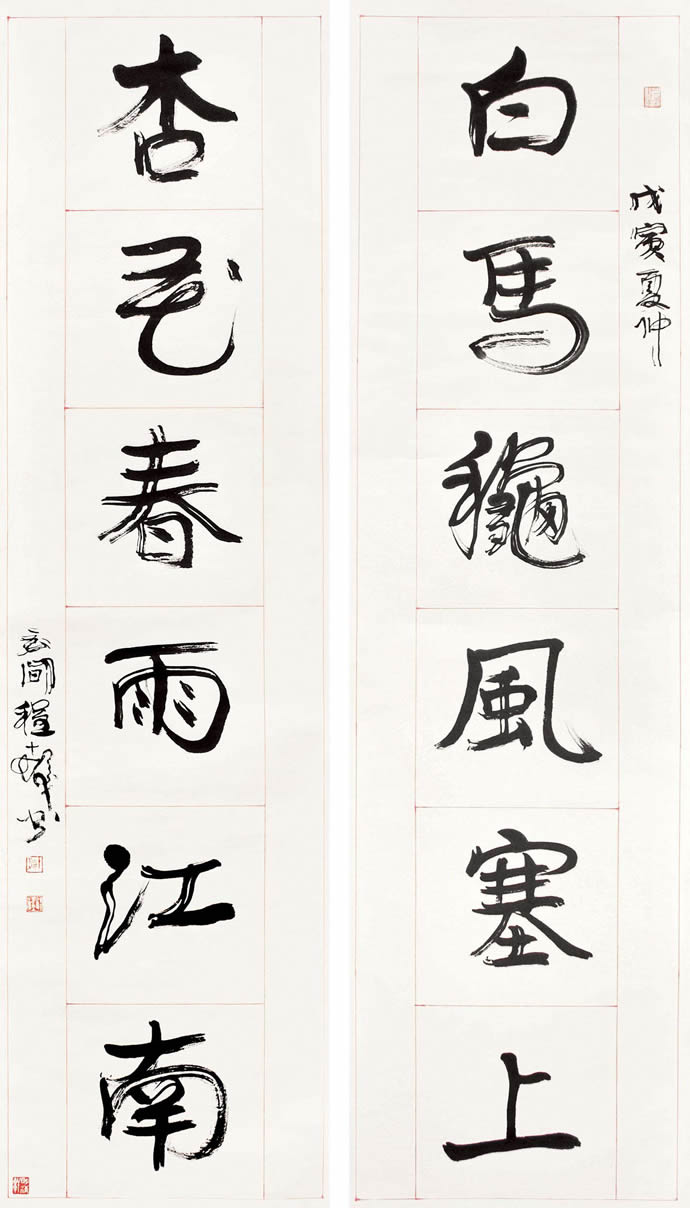 戊寅夏仲
白馬龝風塞上
杏花春雨江南
云間程十髮书